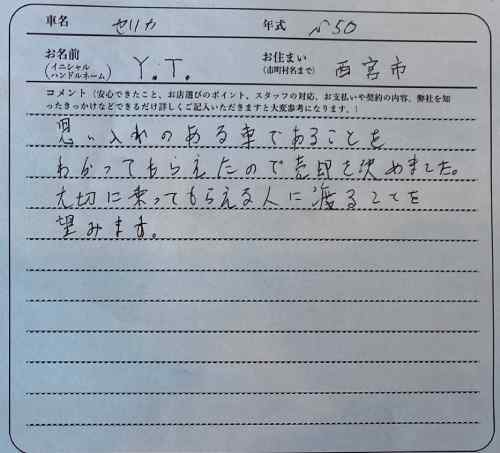 車名 セリカ 年式 S50
お名前 (イニシャル ハンドルネーム) Y.T. お住まい (市町村名まで) 西宮市
コメント（安心できたこと、お店選びのポイント、スタッフの対応、お支払いや契約の内容、弊社を知
ったきっかけなどできるだけ詳しくご記入いただきますと大変参考になります。）
思い入れのある車であることを
わかってもらえたので売却を決めました。
大切に乗ってもらえる人に渡ることを
望みます。